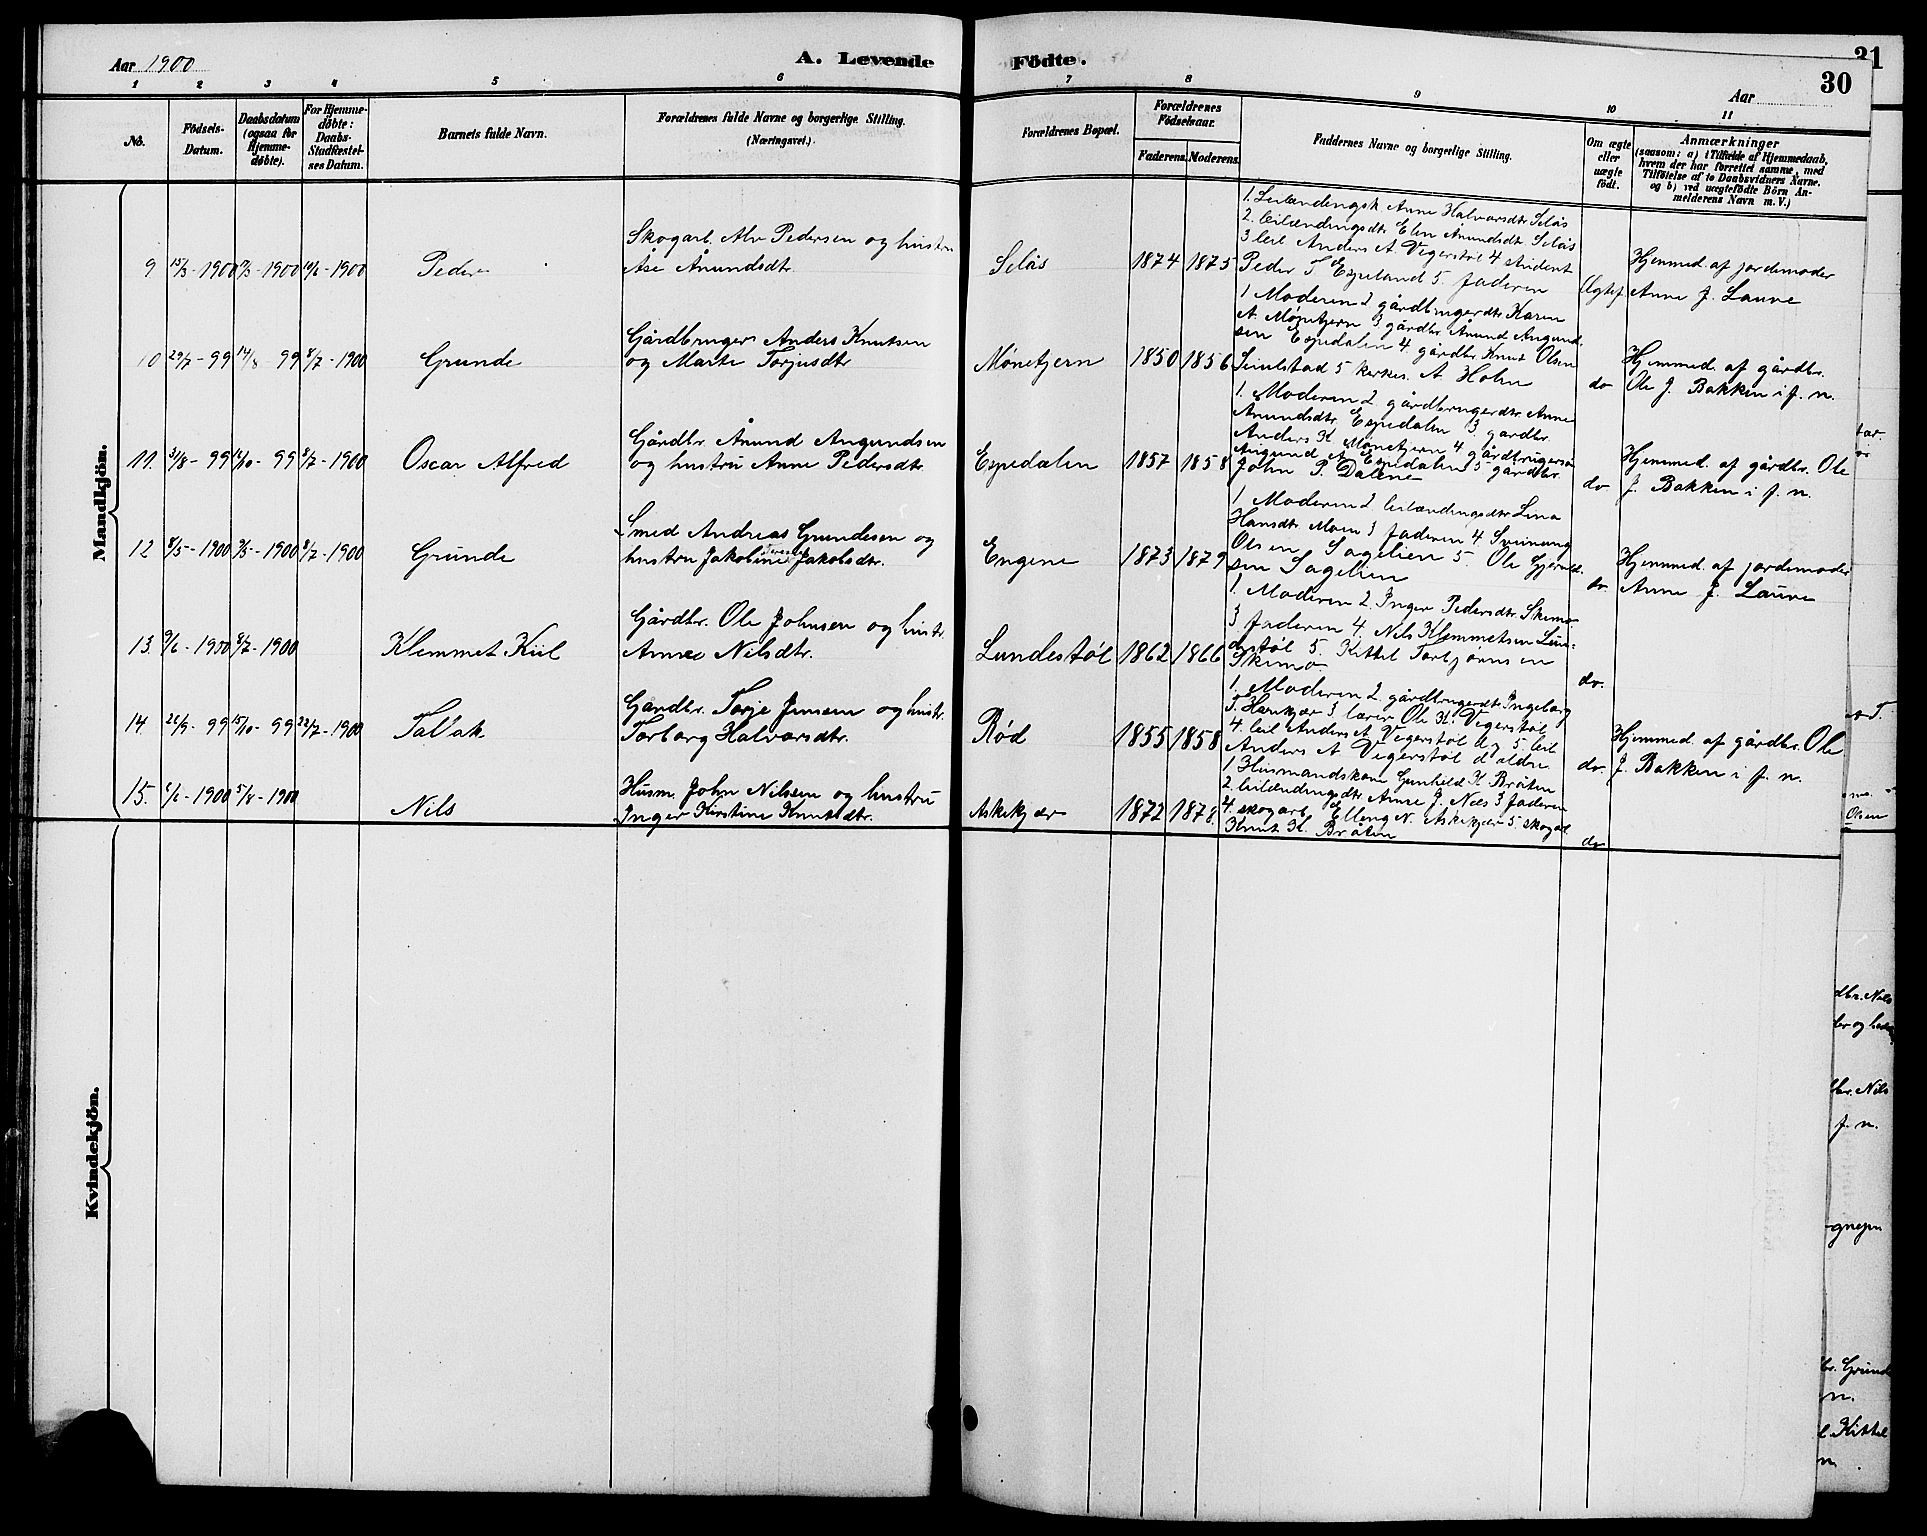 Aar 1900
A. Levende Födte.
Aar
30
31
1 2 3 4 5 6 7 8 9 10 11
No.
Födsels-Datum.
Daabsdatum (ogsaa for Hjemmedöbte).
For Hjemmedöbte: Daabs-Stadfæstelses Datum.
Barnets fulde Navn.
Forældrenes fulde Navne og borgerlige Stilling. (Næringsvei.)
Forældrenes Bopæl.
Forældrenes Födselsaar.
Faderens. Moderens.
Faddernes Navne og borgerlige Stilling.
Om ægte eller uægte födt.
Anmærkninger
(saasom: a) i Tilfælde af Hjemmedaab,
hvem der har forrettet samme, med
Tilföielse af to Daabsvidners Navne.
og b) ved uægtefödte Börn An-
melderens Navn m. V.)
Mandkjön.
9 15/3-1900 17/3-1900 Peder
Skogarb. Alv Pedersen og hustru
Åse Ånundsdtr.
Selås 1874 1875
1. Leilændingsk. Anne Halvorsdtr. Selås
2. leilændingsdtr. Elen Ånundsdtr. Selås
3 leil Anders A. Vegerstøl 4 student
Peder T. Espeland 5. Faderen
Ægtef.
Hjemmed. af jordemoder
Anne J. Lauve
10 29/7-99 14/8 99 8/7-1900 Grunde
Gårdbruger Anders Knutsen
og Marte Torjusdtr
Mønetjern 1850 1856
1 Moderen 2 gårdbrugerdtr Karen
A. Mønetjern 3 gårdbr. Ånund Angund-
sen Espedalen 4. gårdbr. Knut Olsen
Simlstad 5 kirkes. A. Holm
do
Hjemmed. af gårdbr.
Ole J. Bakken i f. n.
11. 31/8-99 99 8/7-1900 Oscar Alfred
Gårdbr. Ånund Angundsen
og hustru Anne Pedersdtr.
Espedalen 1857 1858
1. Moderen 2. gårdbrugerdtr. Anne
Ånundsdtr. Espedalen 3. gårdbr.
Anders K. Mønetjern 4 gårdbrugersøn
Angund A. Espedalen 5 gårdbr.
John P. Dalene
do
Hjemmed. af gårdbr. Ole
J. Bakken i f. n.
12 8/5-1900 9/5-1900 8/7-1900 Grunde
Smed Andreas Grundesen og
hustru Jakobine Terese Jakobsdtr.
Engene 1873 1879
1 Moderen 2 leilændingsdtr. Lina
Hansdtr. Moen 3 faderen 4 Sveinung
Olsen Sagelien 5. Ole
sen Sagelien
do
Hjemmed. af jordemoder
Anne J. Lauve
13. 9/6-1900 8/7-1900 Klemmet Kiil
Gårdbr. Ole Johnsen og hustr.
Anne Nilsdtr.
Lundestøl 1862 1866
1. Moderen 2. Inger Pedersdtr. Skimo
3 faderen 4. Nils Klemmetsen Lun-
destøl 5. Kittel Torbjørnsen
Skimo
do.
14 99 15/10-99 22/7-1900 Talak
Gårdbr. Torje Jensen og hustr.
Torborg Halvorsdtr.
Rød 1855 1858
1. Moderen 2 gårdbrugerdtr. Ingeborg
T. Hankjær 3 lærer Ole K. Vegerstøl
4. leil Anders A Vegerstøl d y 5. leil
Anders A Vegerstøl d ældre
do.
Hjemmed. af gårdbr. Ole
J. Bakken i f. n.
15. 6/6-1900 5/8-1900 Nils
Husm. John Nilsen og hustru
Inger Kirstine Knutsdtr.
Askekjær 1872 1878
1 Husmandskone Gunhild K Bråten
2. leilændingsdtr Anne J. Næs 3 faderen
4. skogarb Elleng N. Askekjær 5. skogarb
Knut K. Bråten
do
Kvindekjön.
Olsen
dbr. Nils
br. Nils
f. n.
br. Grunde
Kittel